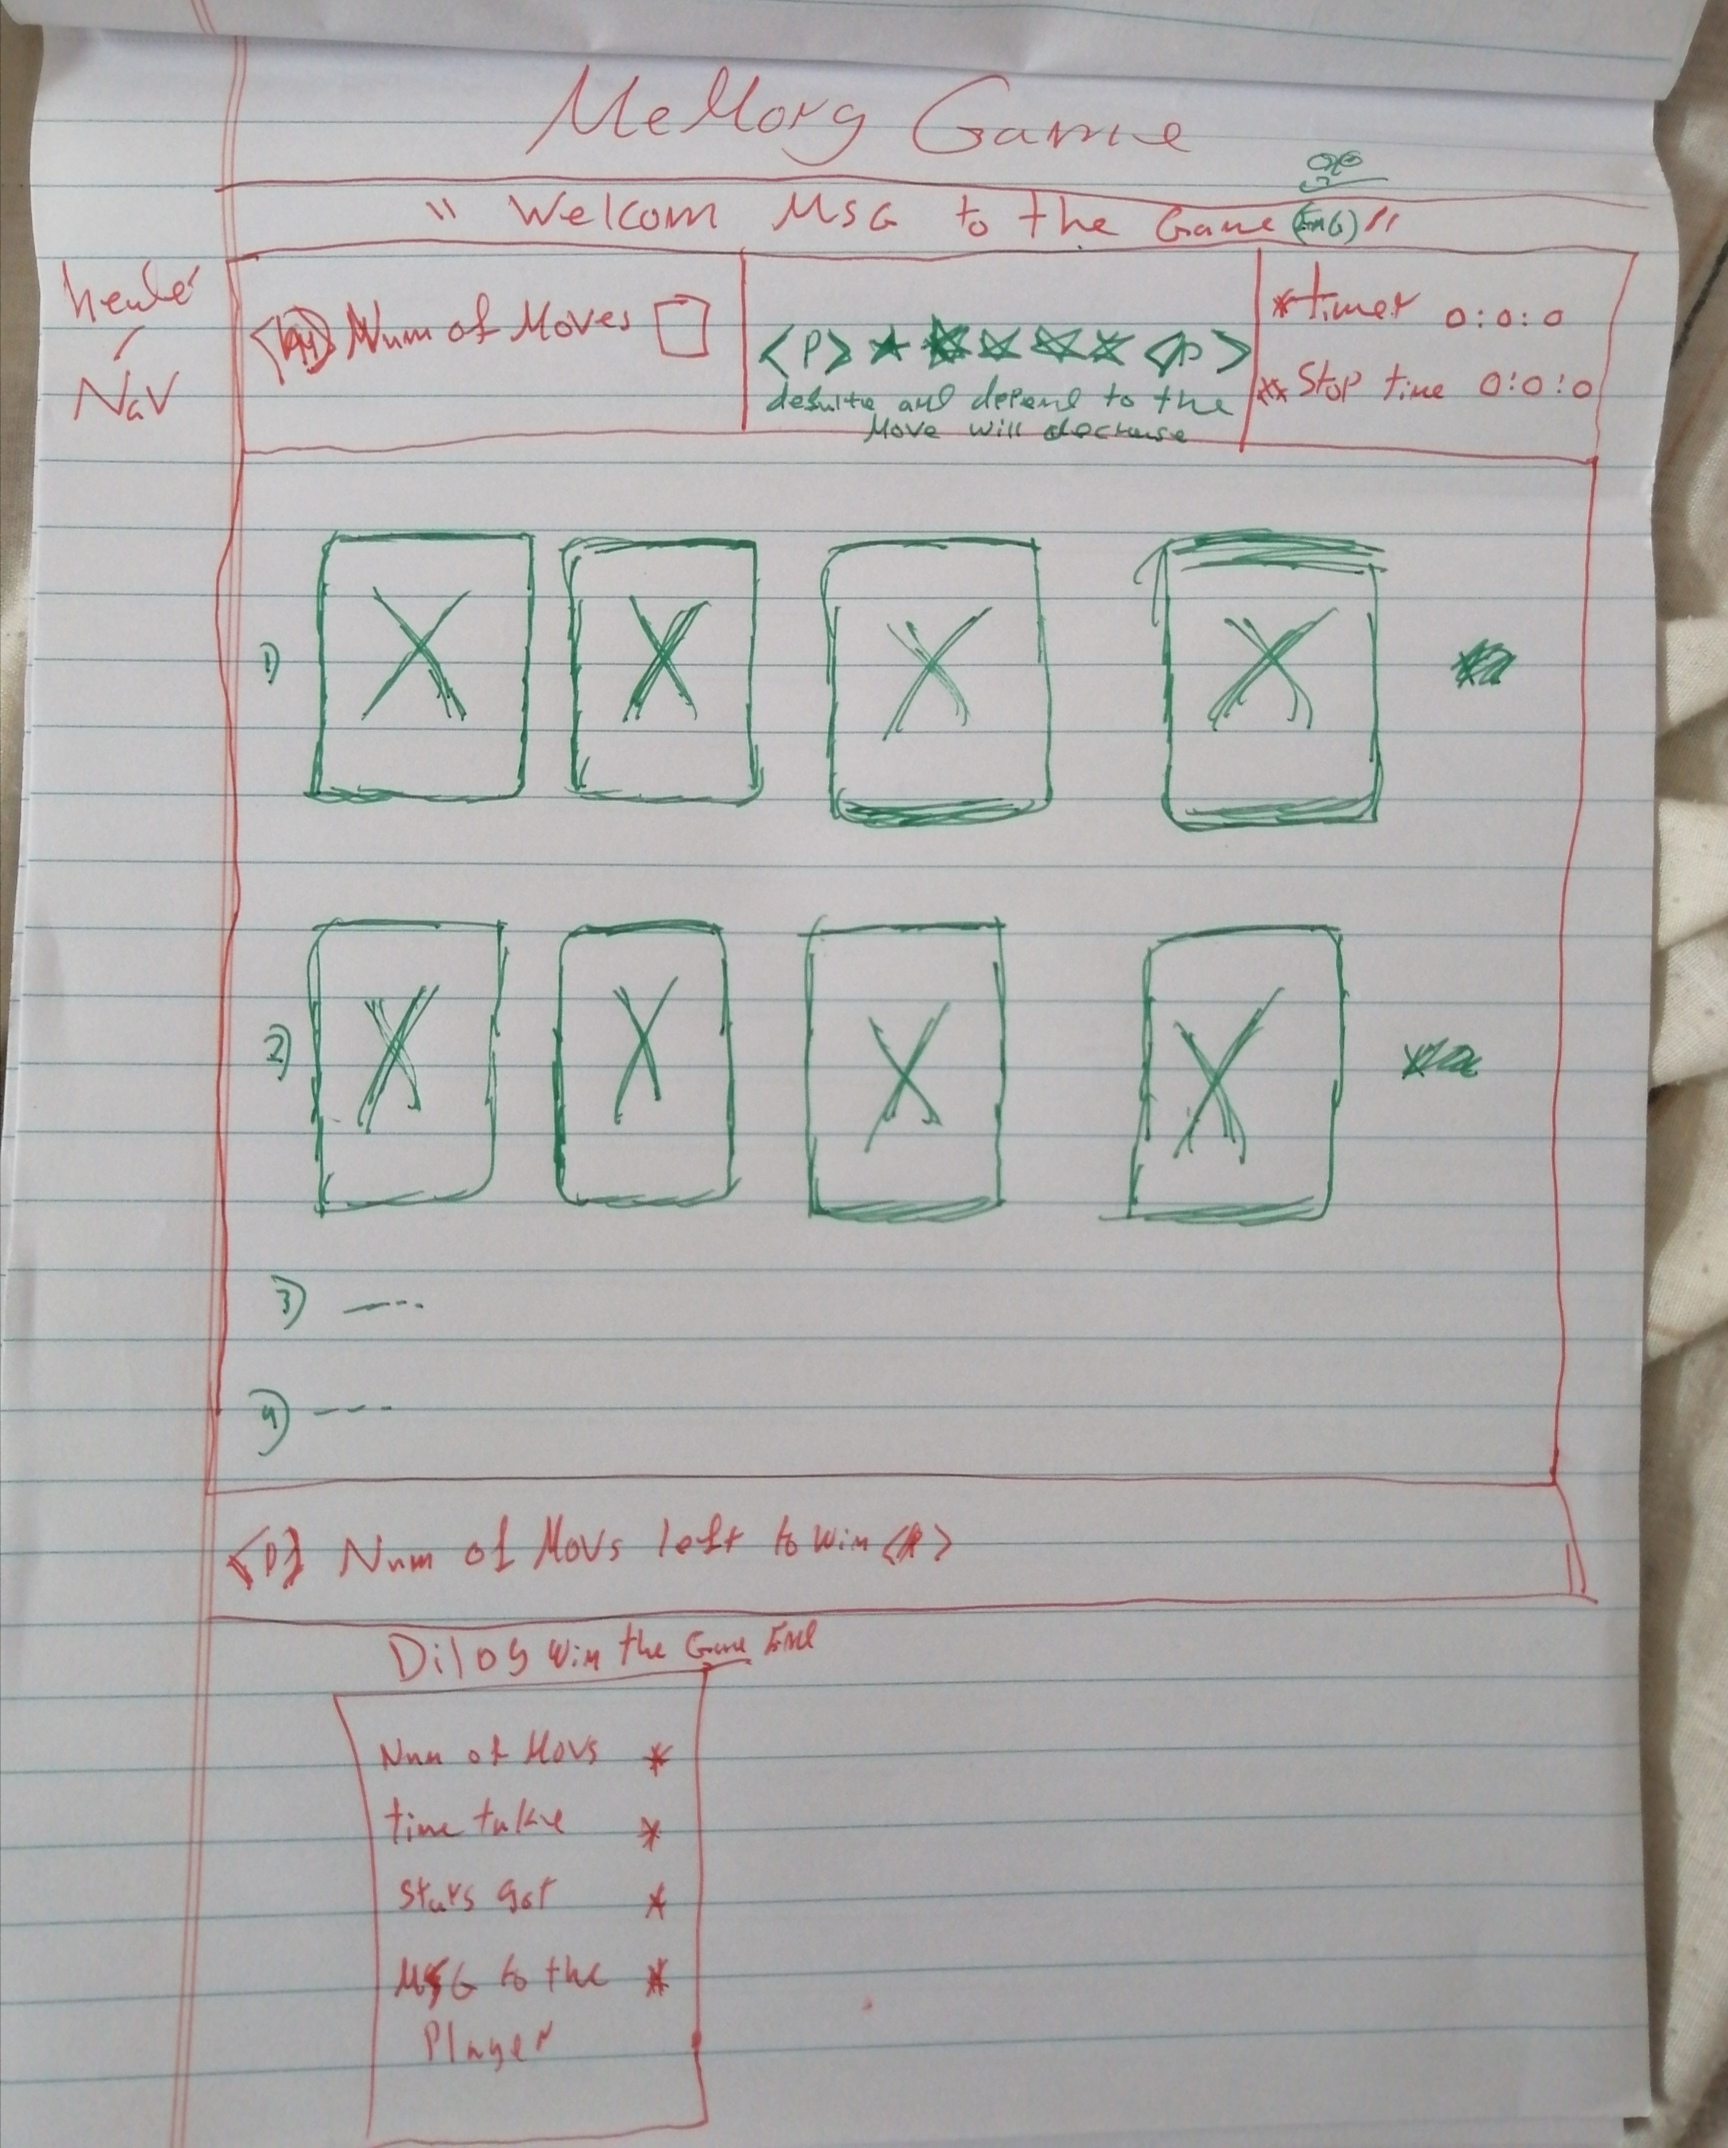 MeMory Game
" Welcom MsG to the Game (EnG) "
header
NaV
Num of Moves
<P> <P>
and depend to the
Move will decrease
*timer 0:0:0
** Stop time 0:0:0
1)
2)
3) ----
4) ---
<P> Num of Movs left to Win <P>
Dilog Win the Game End
Num of Movs *
time takke *
stars got *
MSG to the *
Player